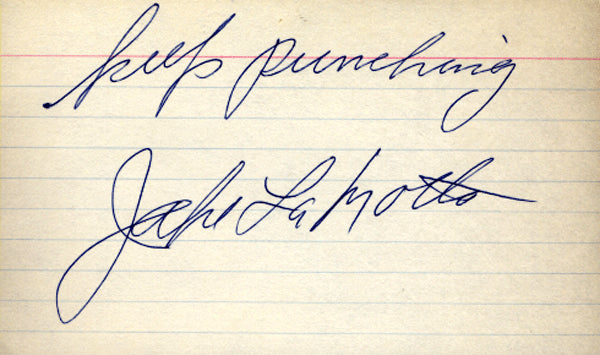 keep punching
Jake LaMotta